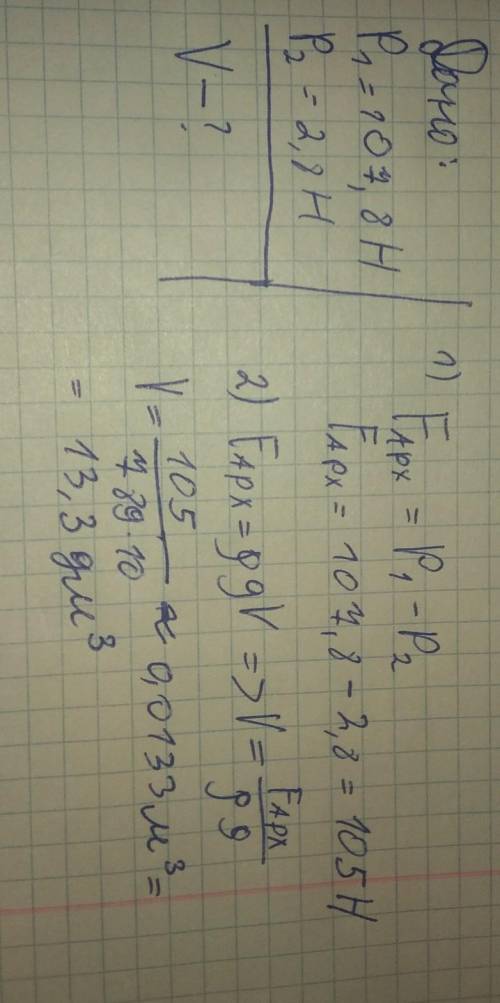 Дано:
P₁ = 107,8 Н
P₂ = 2,8 Н
V - ?
1) Fарх = P₁ - P₂
Fарх = 107,8 - 2,8 = 105 Н
2) Fарх = ρgV => V = Fарх / ρg
V = 105 / 789·10 ≈ 0,0133 м³ =
= 13,3 дм³